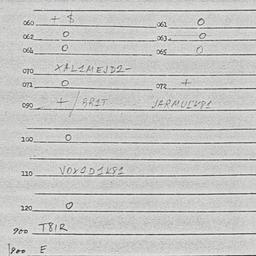 060 + $ 061 0
062 0 063 0
064 0 065 0
070 XAL1MEJD2-
071 0 072 +
090 +/5R1T JARMUIKP1
100 0
110 VOXOD1K81
120 0
900 T81R
1900 E